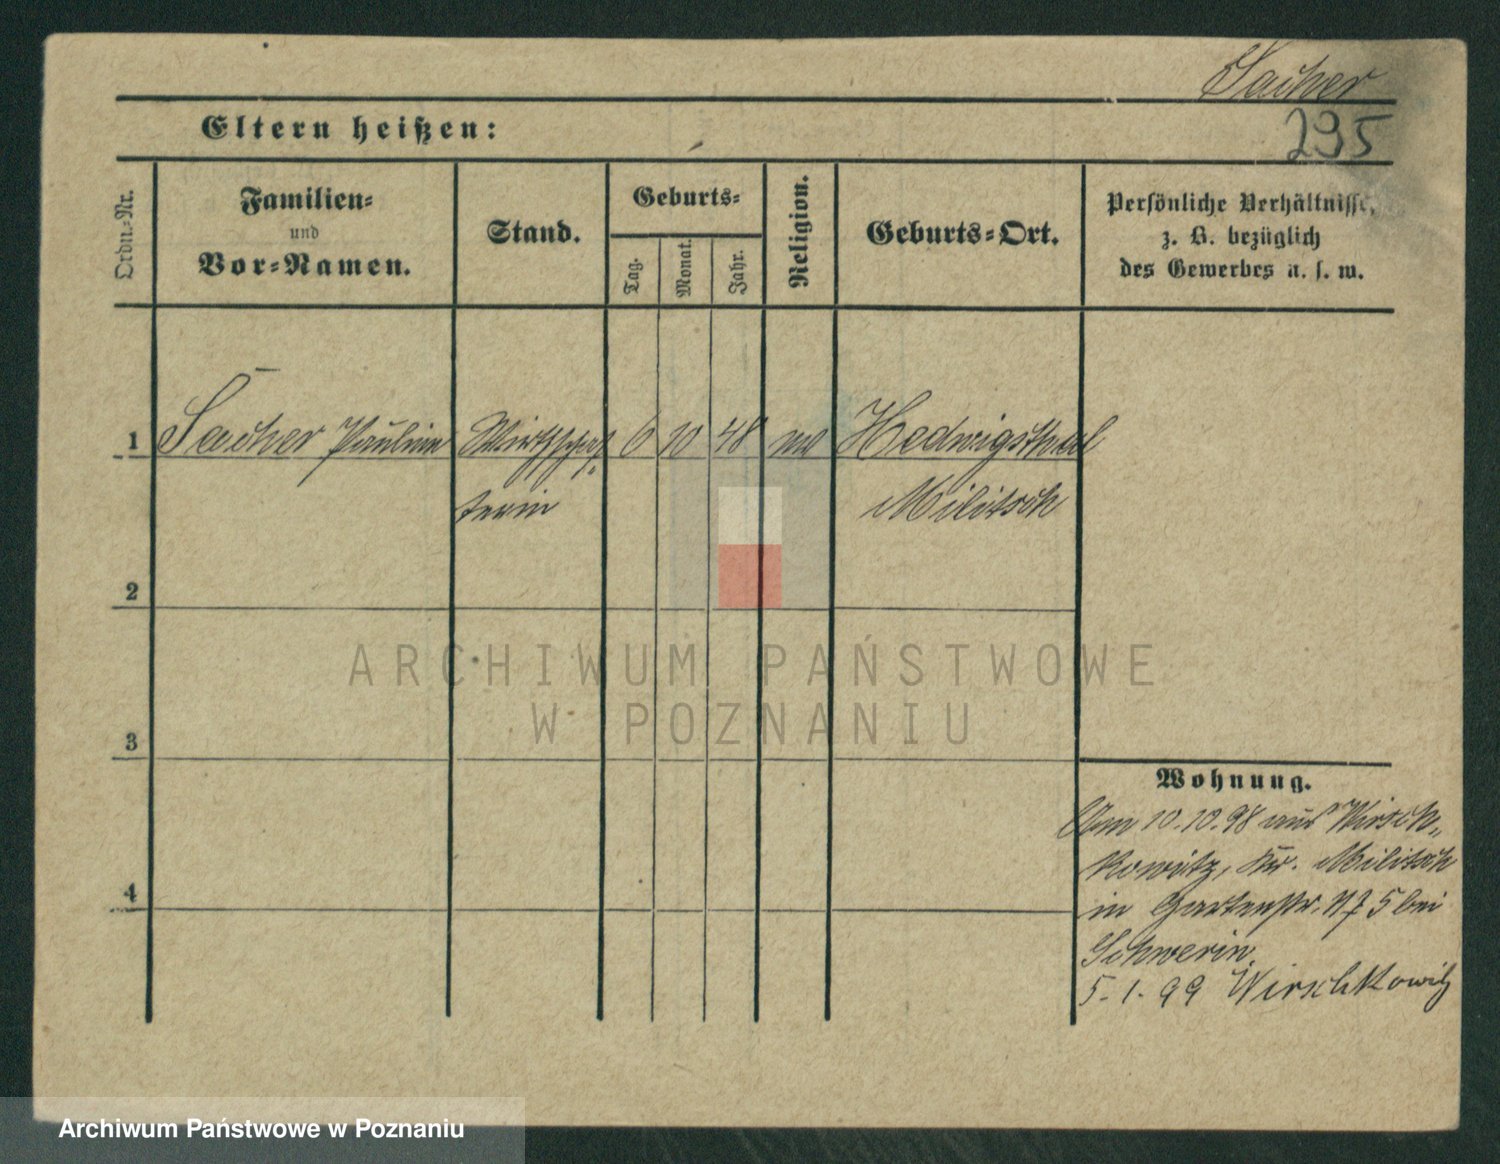 Sacher
295
Eltern heißen:
Ordn.-Nr.
Familien-
und
Vor-Namen.
Stand.
Geburts-
Tag.
Monat.
Jahr.
Religion.
Geburts-Ort.
Persönliche Verhältnisse,
z. B. bezüglich
des Gewerbes u. s. w.
1 Sacher Pauline Wirthschaf- 6 10 48 Hedwigsthal
terin Militsch
2
ARCHIWUM PAŃSTWOWE
W POZNANIU
3
Wohnung.
Am 10.10.98 aus Wirsch-
kowitz, Kr. Militsch
4
in Gartenstr. No 5 bei
Schwerin
5.1.99 Wirschkowitz
Archiwum Państwowe w Poznaniu